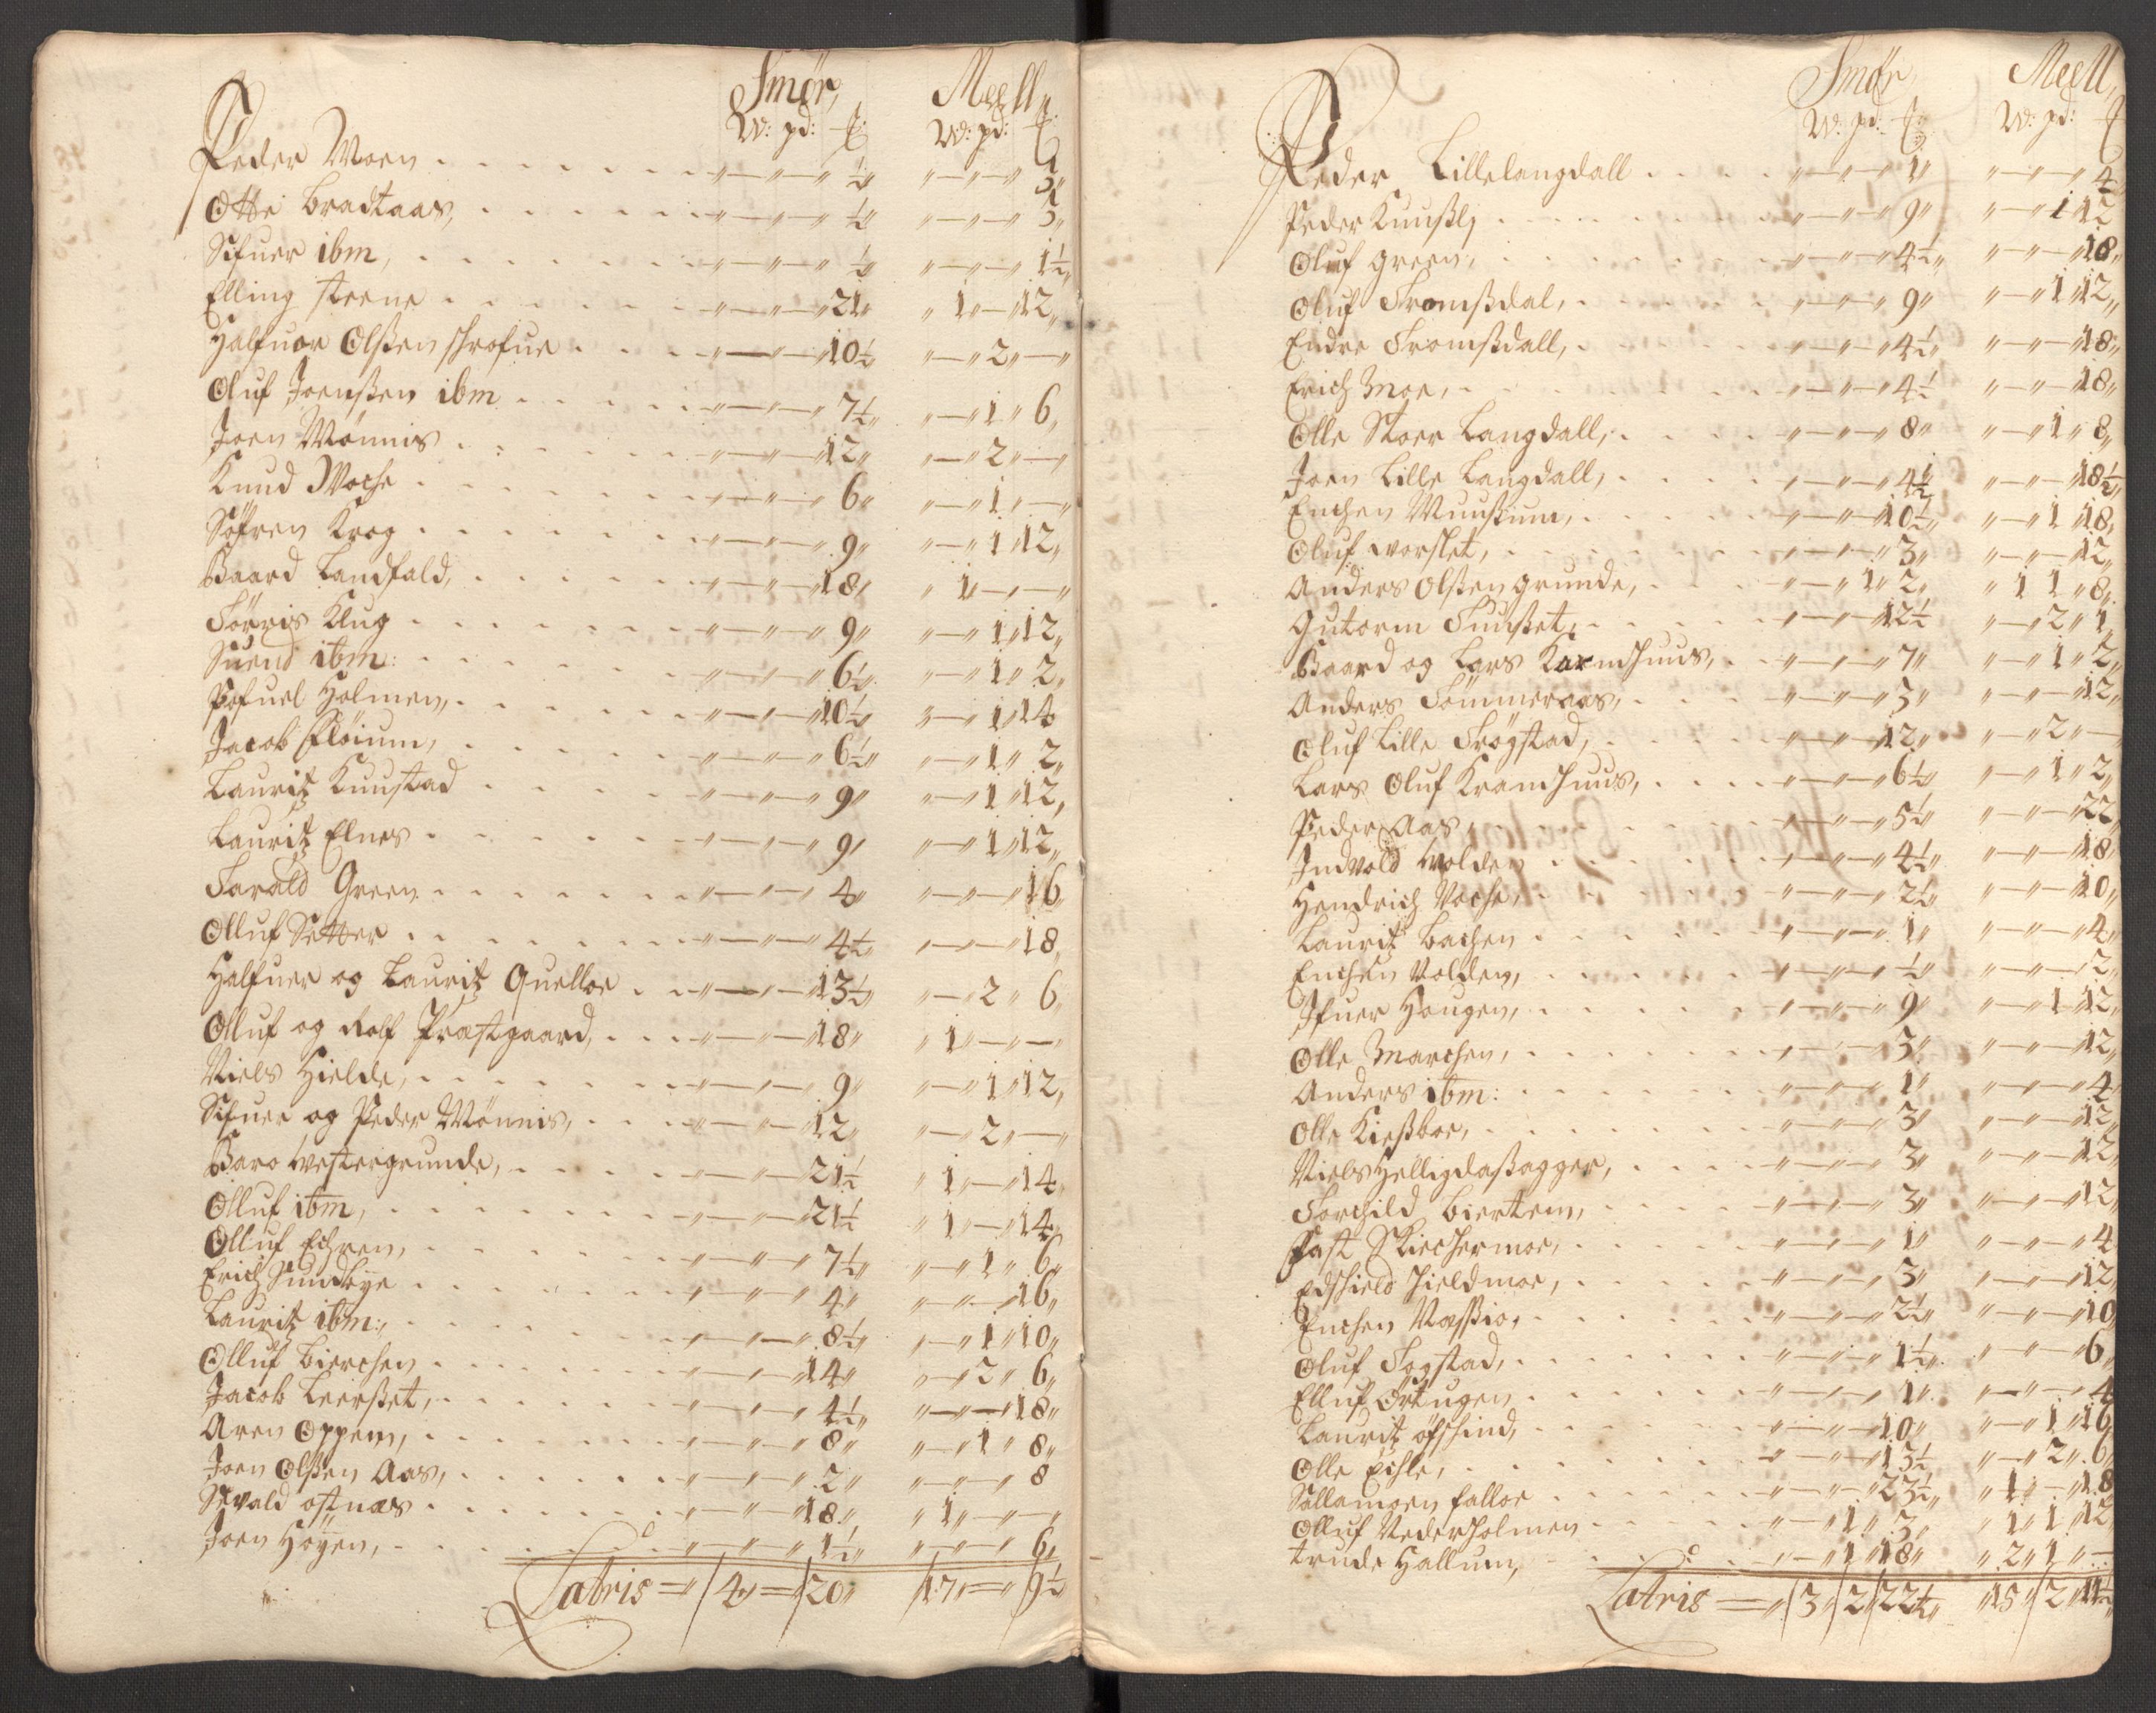 Smør, Meell,
W: pd: ℔: W: pd: ℔:
Peder Moen . . . . . . „—„—„ ½„ „—„—„ 3„
Otte Bradtaas, . . . . . „—„—„ ½„ „—„—„ 3„
Sifuer ibm, . . . . . . „—„—„ ½„ „—„—„ 1½„
Elling steene . . . . . „—„—„21„ „ 1„—„12„
Halfuor Olßen schrofue . . . „—„—„10½ „—„2„—„
Oluf Joenßen ibm . . . . „—„—„ 7½„ „—„1„ 6„
Joen Mønnis . . . . . „—„—„12„ „—„2„—„
Knud Moche . . . . . . „—„—„ 6„ „—„1„—„
Søfren Krog . . . . . . „—„—„ 9„ „—„1„12„
Baard Landfald, . . . . . „—„—„18„ „ 1„—„—„
Törris Klug . . . . . . „—„—„ 9„ „—„1„12„
Suend ibm: . . . . . . „—„—„ 6½„ „—„1„ 2„
Pofuel Holmen, . . . . . „—„—„10½„ „—„1„14
Jacob Fløium, . . . . . „—„—„ 6½„ „—„1„ 2„
Lauritz Kuustad . . . . „—„—„ 9„ „—„1„12„
Lauritz Elnes . . . . . „—„—„ 9„ „—„1„12„
Tarald Green . . . . . . „—„—„ 4„ „—„—„16„
Olluf Setter . . . . . . „—„—„ 4½„ „—„—„18„
Halfuer og Lauritz Quelloe . . „—„—„13½„ „—„2„ 6„
Olluf og Rolf Præstgaard, . . . „—„—„18„ „ 1„—„—„
Niels Hielde, . . . . . . „—„—„ 9„ „—„1„12„
Sifuer og Peder Mønnis, . . . „—„—„12„ „—„2„—„
Baro Westergrunde, . . . . „—„—„21½ „ 1„—„14
Olluf ibm, . . . . . . . „—„—„21½ „ 1„—„14„
Olluf Echren, . . . . . . „—„—„ 7½„ „—„1„ 6„
Erich Sundbye . . . . . „—„—„ 4„ „—„—„16„
Lauritz ibm:, . . . . . . „—„—„ 8½„ „—„1„10„
Olluf Bierchen . . . . . „—„—„14„ „—„2„ 6„
Jacob Leerßet, . . . . . „—„—„ 4½„ „—„—„18„
Aren Oppem, . . . . . . „—„—„ 8„ „—„1„ 8„
Joen Olßen Aas, . . . . . „—„—„ 2„ „—„—„ 8
Sevald østnæs . . . . . . „—„—„18„ „ 1„—„—„
Joen Høyen, . . . . . . „—„—„ 1½„ „—„—„ 6„
Latris = „/4„=/20„ /17„=„/9½
Smør, Meell,
W: pd: ℔: W: pd: ℔
Peder Lillelangdall . . . . „—„—„ 1„ „—„—„ 4„
Peder Kuußlj . . . . . . „—„—„ 9„ „—„1„12
Oluf green, . . . . . . „—„—„4½„ „—„—„18„
Oluf Tromßdal, . . . . . „—„—„ 9„ „—„1„12„
Endre Tromßdall, . . . . „—„—„4½„ „—„—„18„
Erich Moe, . . . . . . . „—„—„4½ „—„—„18„
Olle Stoer Langdall, . . . . „—„—„ 8„ „—„1„ 8„
Joen Lille Langdall, . . . . „—„—„4½ „—„—„18½„
Enchen Muußum, . . . . „—„—„10½„ „—„1„18„
Oluf worslet, . . . . . . „—„—„ 3„ „—„—„12„
Anders Olßen grunde, . . . „—„1„ 2„ „ 1„1„ 8„
Gutorm Tuußet, . . . . . „—„—„12½ „—„2„ 1„
Baard og Lars Karmshuus, . . „—„—„ 7„ „—„1„ 2„
Anders Tømmeraas, . . . . „—„—„ 3„ „—„—„12„
Oluf Lille Trøgstad, . . . . „—„—„12„ „—„2„—„
Lars Oluf Kramshuus, . . . . „—„—„ 6½„ „—„1„ 2„
Peder Aas, . . . . . . . „—„—„5½„ „—„—„22„
Indvold wolden . . . . . „—„—„4½„ „—„—„18„
Hendrich Moche, . . . . . „—„—„2½„ „—„—„10„
Lauritz Bachen . . . . . „—„—„ 1„ „—„—„4„
Enchen Volden, . . . . . „—„—„ ½„ „—„—„2„
Ifuer Haugen, . . . . . „—„—„ 9„ „—„1„12„
Olle Marchen, . . . . . „—„—„ 3„ „—„—„12„
Anders ibm: . . . . . . „—„—„ 1„ „—„—„ 4„
Olle Kießboe, . . . . . . „—„—„ 3„ „—„—„12„
Niels Helligdaßagger, . . . . „—„—„ 3„ „—„—„12„
Torchild Biertem, . . . . „—„—„ 3„ „—„—„12„
Past Skierhermoe, . . . . „—„—„ 1„ „—„—„4„
Edschield Hieldmoe, . . . . „—„—„ 3„ „—„—„12„
Enchen Waßio, . . . . . „—„—„2½„ „—„—„10„
Oluf Togstad, . . . . . . „—„—„1½„ „—„—„6„
Elluf Ørtugen, . . . . . „—„—„ 1„ „—„—„ 4„
Lauritz øfschind, . . . . . „—„—„10„ „—„1„16
Olle Echle, . . . . . . . „—„—„13½ „—„2„ 6„
Sollamoen falloe . . . . „—„—„23½„ „ 1„—„18
Olluf Nederholmen . . . . „—„1„ 3„ „ 1„1„12
trude Hallum, . . . . . . „—„1„18„ „ 2„1„—
Latris = „/3„/2/22½„ „15„/2„/11½„